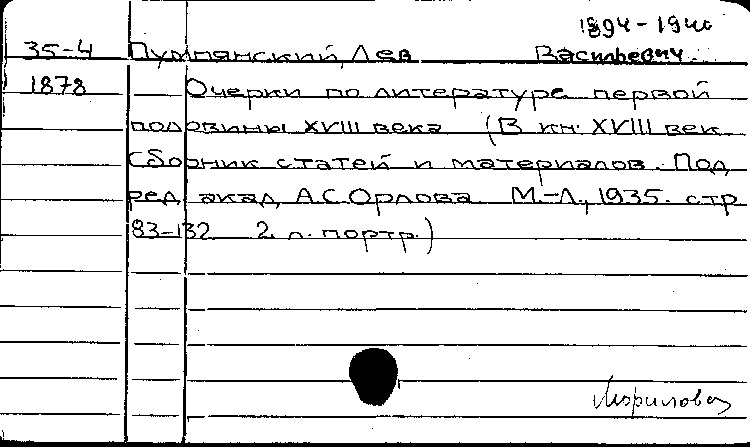 1894-1940
35-4 Пумпянский, Лев Васильевич.
1878 Очерки по литературе первой
половины XVIII века (В кн: XVIII век.
Сборник статей и материалов. Под
ред. акад. А.С.Орлова. М.-Л., 1935. стр
83-132 2 л. портр.)